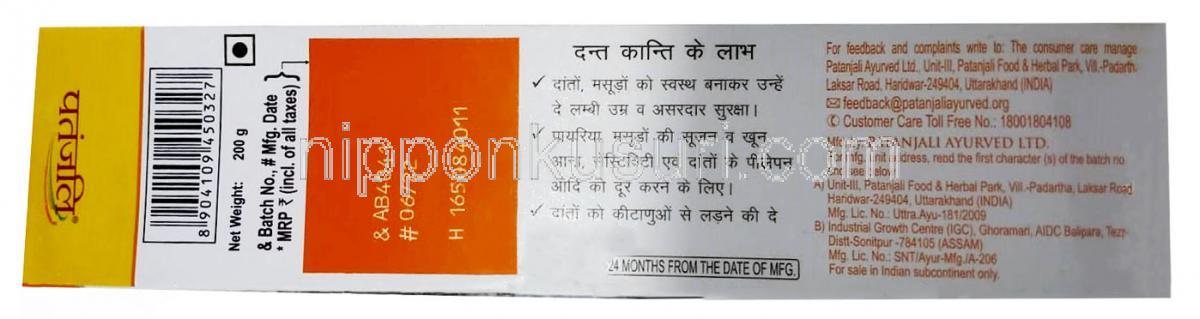 पतंजलि®
8 904109 450327
Net Weight: 200 g
& Batch No., # Mfg. Date
* MRP ₹ (incl. of all taxes)
& AB4043
दन्त कान्ति के लाभ
✓ दांतों, मसूड़ों को स्वस्थ बनाकर उन्हें
दे लम्बी उम्र व असरदार सुरक्षा।
✓ पायरिया, मसूड़ों की सूजन व खून
आना, सेंस्टिविटी एवं दांतों के पीलेपन
आदि को दूर करने के लिए।
✓ दांतों को कीटाणुओं से लड़ने की दे
24 MONTHS FROM THE DATE OF MFG.
For feedback and complaints write to: The consumer care manage
Patanjali Ayurved Ltd., Unit-III, Patanjali Food & Herbal Park, Vill.-Padarth
Laksar Road, Haridwar-249404, Uttarakhand (INDIA)
feedback@patanjaliayurved.org
Customer Care Toll Free No.: 18001804108
PATANJALI AYURVED LTD.
address, read the first character (s) of the batch no
see below
A) Unit-III, Patanjali Food & Herbal Park, Vill.-Padartha, Laksar Road
Haridwar-249404, Uttarakhand (INDIA)
Mfg. Lic. No.: Uttra.Ayu-181/2009
B) Industrial Growth Centre (IGC), Ghoramari, AIDC Balipara, Tezp
Distt-Sonitpur -784105 (ASSAM)
Mfg. Lic. No.: SNT/Ayur-Mfg./A-206
For sale in Indian subcontinent only.
nipponkusuri.com